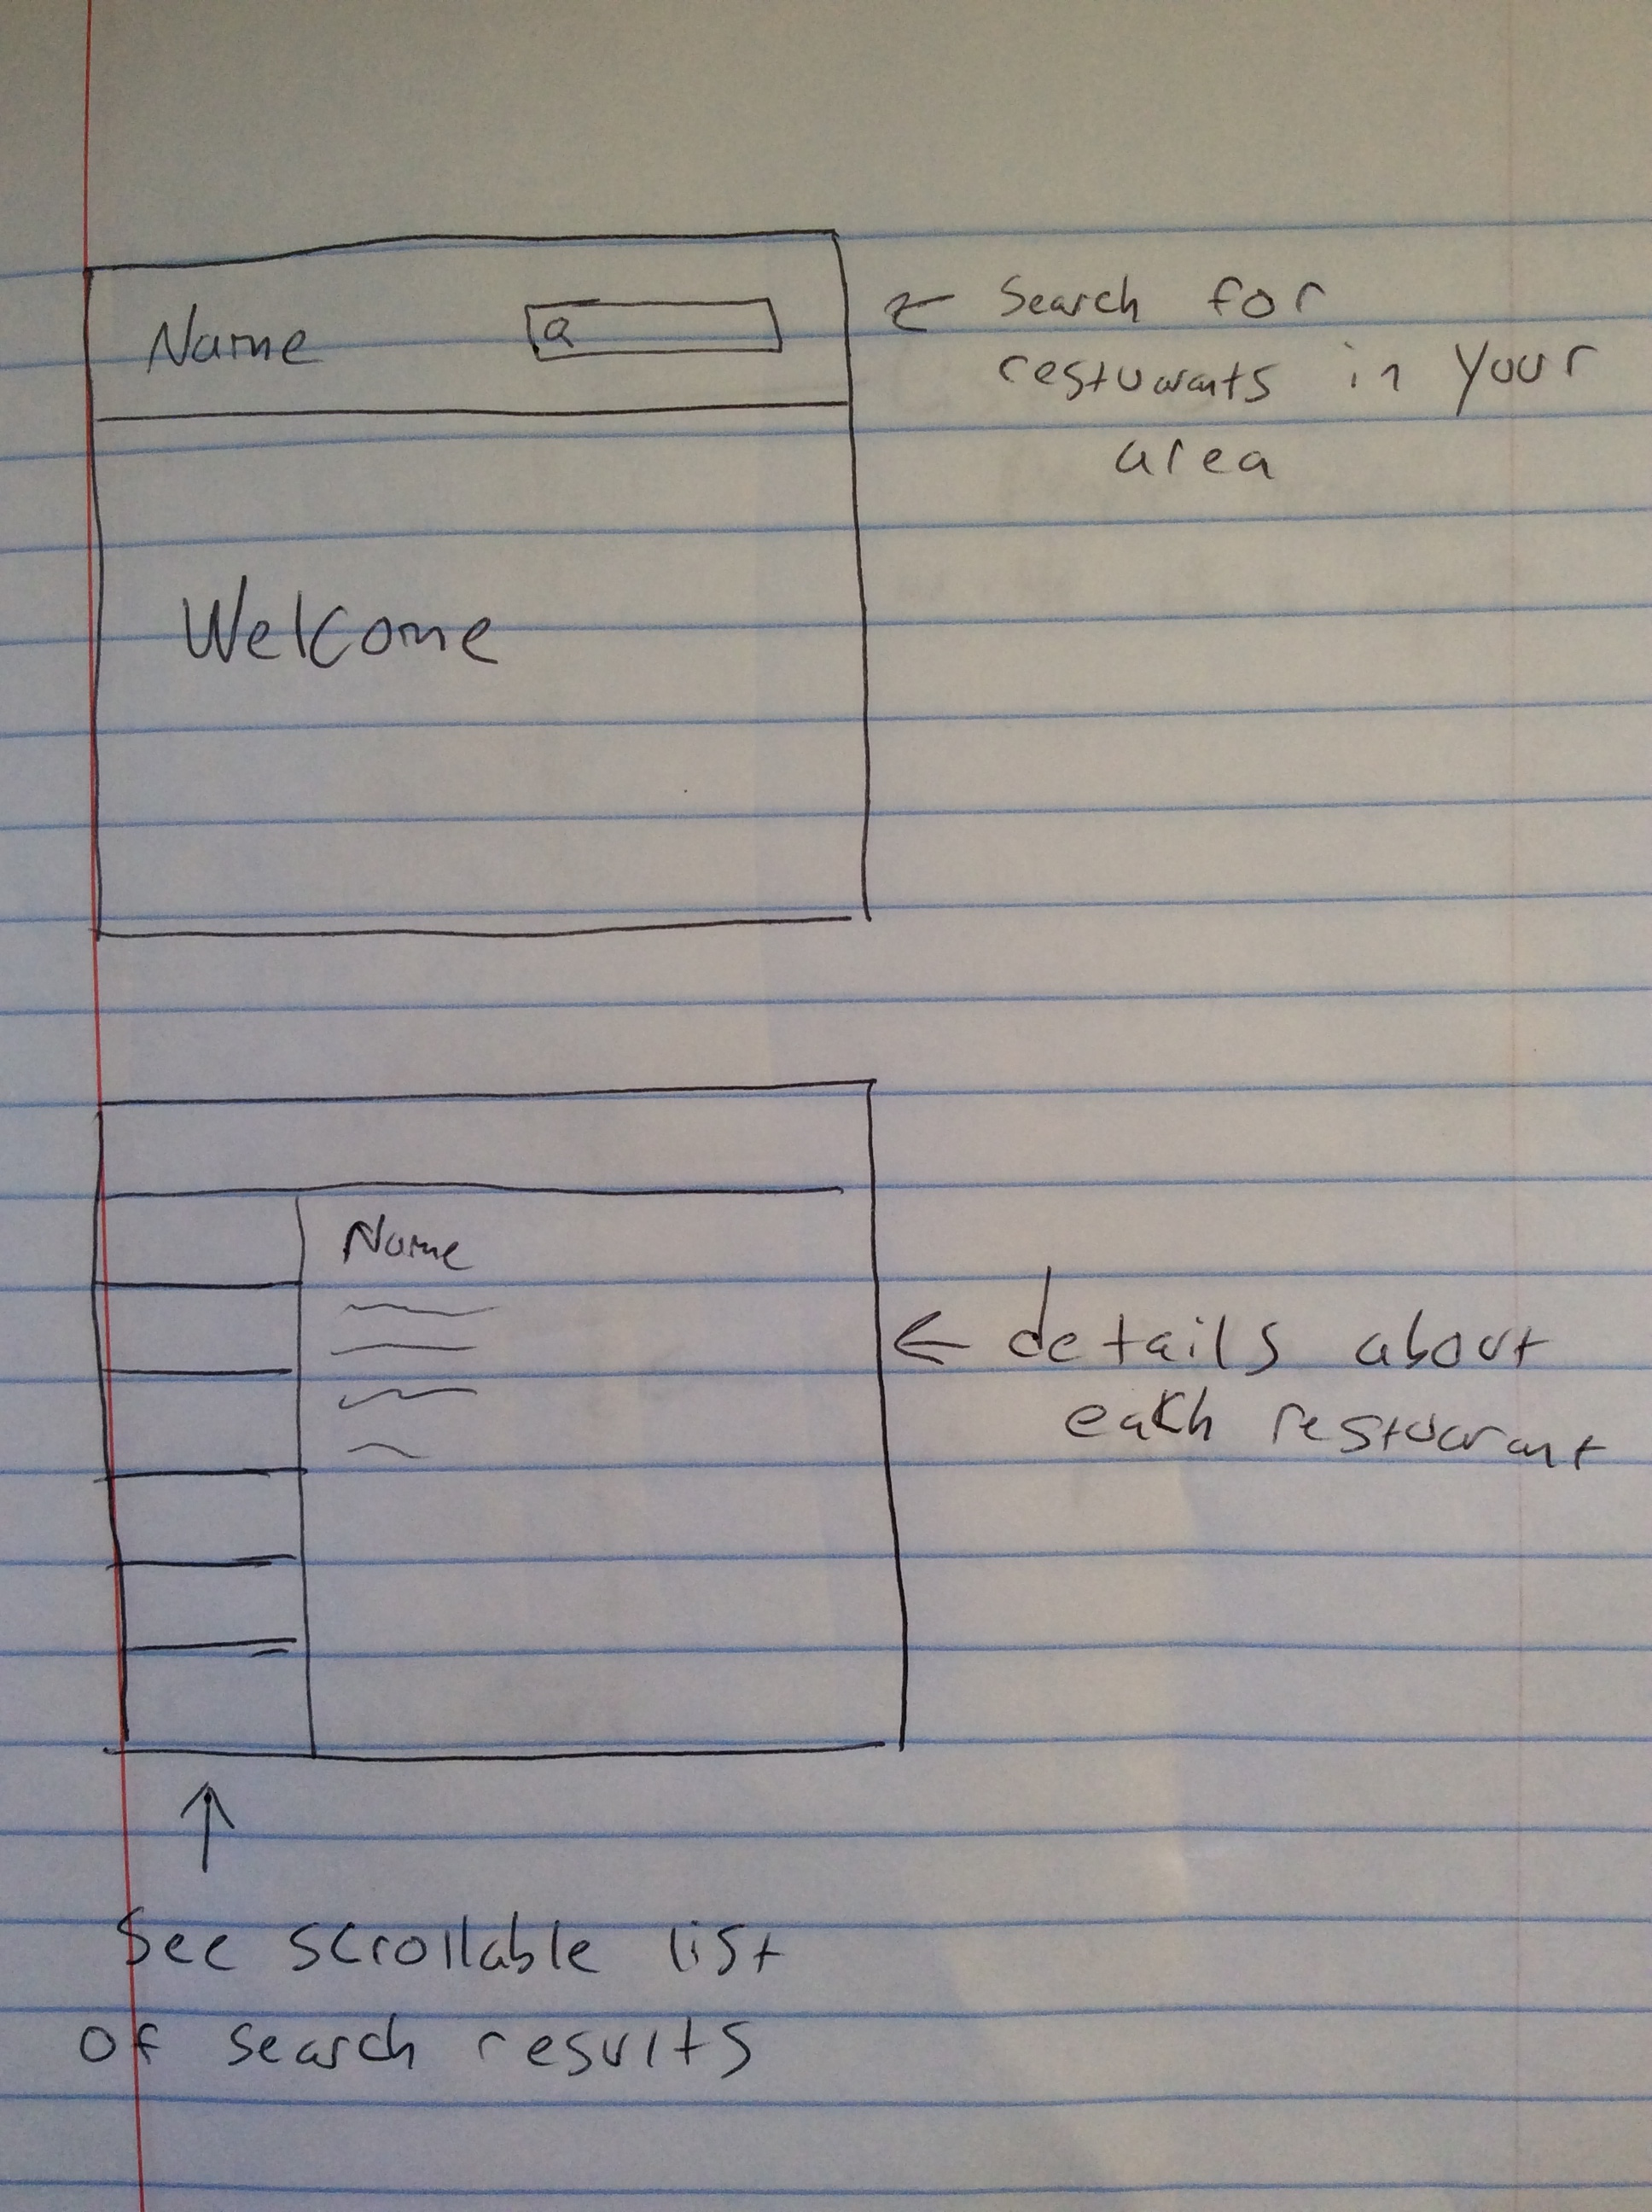 Name
Search for
resturants in your
area
Welcome
Name
details about
each resturant
See scrollable list
of search results